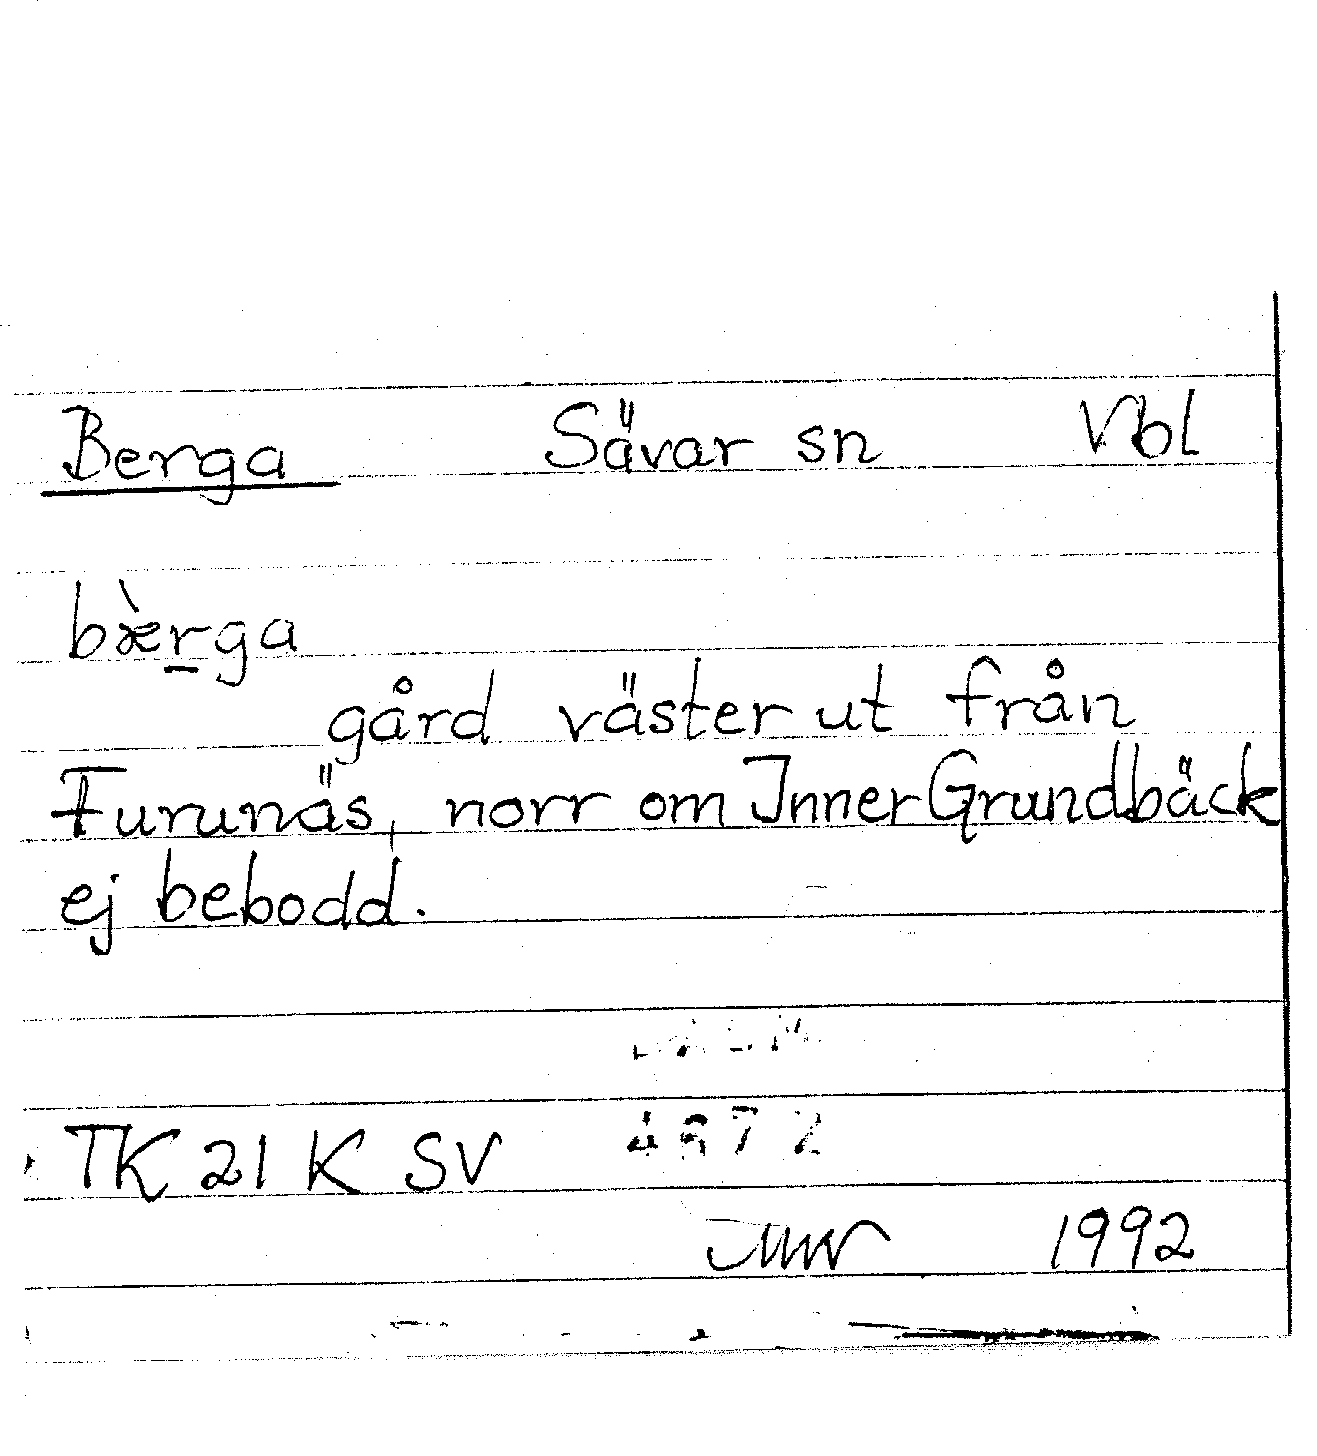 Berga Sävar sn Vbl
bæ̀r̲ga
gård väster ut från
Furunäs, norr om InnerGrundbäck
ej bebodd.
TK 21 K SV
1992